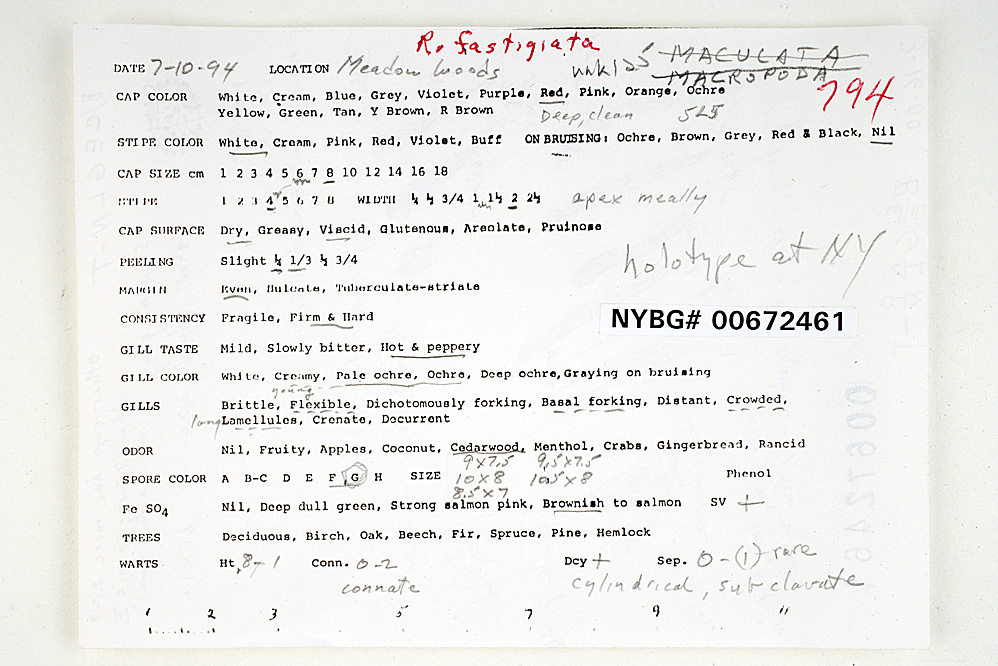 R. fastigiata
DATE 7-10-94 LOCATION Meadow Woods MACULATA
MACROPODA
794
CAP COLOR White, Cream, Blue, Grey, Violet, Purple, Red, Pink, Orange, Ochre
Yellow, Green, Tan, Y Brown, R Brown Deep, clean 525
STIPE COLOR White, Cream, Pink, Red, Violet, Buff ON BRUISING: Ochre, Brown, Grey, Red & Black, Nil
CAP SIZE cm 1 2 3 4 5 6 7 8 10 12 14 16 18
STIPE 1 2 3 4 5 6 7 8 WIDTH ¼ ½ 3/4 1 1½ 2 2½ apex meally
CAP SURFACE Dry, Greasy, Viscid, Glutenous, Areolate, Pruinose
PEELING Slight ¼ 1/3 ½ 3/4
holotype at NY
MARGIN Even, Sulcate, Tuberculate-striate
CONSISTENCY Fragile, Firm & Hard
NYBG# 00672461
GILL TASTE Mild, Slowly bitter, Hot & peppery
GILL COLOR White, Creamy, Pale ochre, Ochre, Deep ochre, Graying on bruising
young
GILLS Brittle, Flexible, Dichotomously forking, Basal forking, Distant, Crowded,
long Lamellules, Crenate, Decurrent
ODOR Nil, Fruity, Apples, Coconut, Cedarwood, Menthol, Crabs, Gingerbread, Rancid
9x7.5 9.5x7.5
SPORE COLOR A B-C D E F G H SIZE 10x8 10.5x8 Phenol
8.5x7
Fe SO4 Nil, Deep dull green, Strong salmon pink, Brownish to salmon SV +
TREES Deciduous, Birch, Oak, Beech, Fir, Spruce, Pine, Hemlock
WARTS Ht .8-1 Conn. 0-2 Dcy + Sep. 0-(1) rare
connate cylindrical, subclavate
1 2 3 5 7 9 11